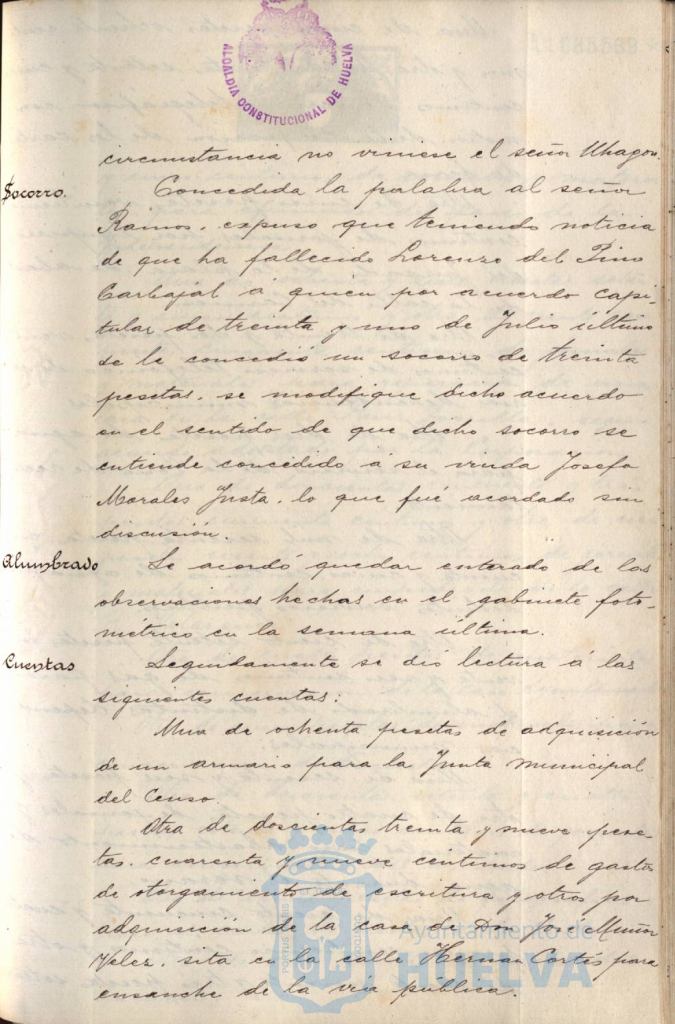 ALCALDIA CONSTITUCIONAL DE HUELVA
circunstancia no viniese el señor Uhagon.
Socorro.
Concedida la palabra al señor
Ramos, expuso que teniendo noticia
de que ha fallecido Lorenzo del Pino
Carbajal á quien por acuerdo capi-
tular de treinta y uno de Julio último
se le concedió un socorro de treinta
pesetas, se modifique dicho acuerdo
en el sentido de que dicho socorro se
entiende concedido á su viuda Josefa
Morales Justa, lo que fué acordado sin
discusión.
Alumbrado
Se acordó quedar enterado de las
observaciones hechas en el gabinete foto-
métrico en la semana última.
Cuentas
Seguidamente se dió lectura á las
siguientes cuentas:
Una de ochenta pesetas de adquisición
de un armario para la Junta municipal
del Censo.
Otra de doscientas treinta y nueve pese-
tas, cuarenta y nueve céntimos de gastos
de otorgamiento de escritura y otros por
adquisición de la casa de Don José Muñoz
Velez, sita en la calle Hernan Cortés para
ensanche de la via pública.
Ayuntamiento de
HUELVA